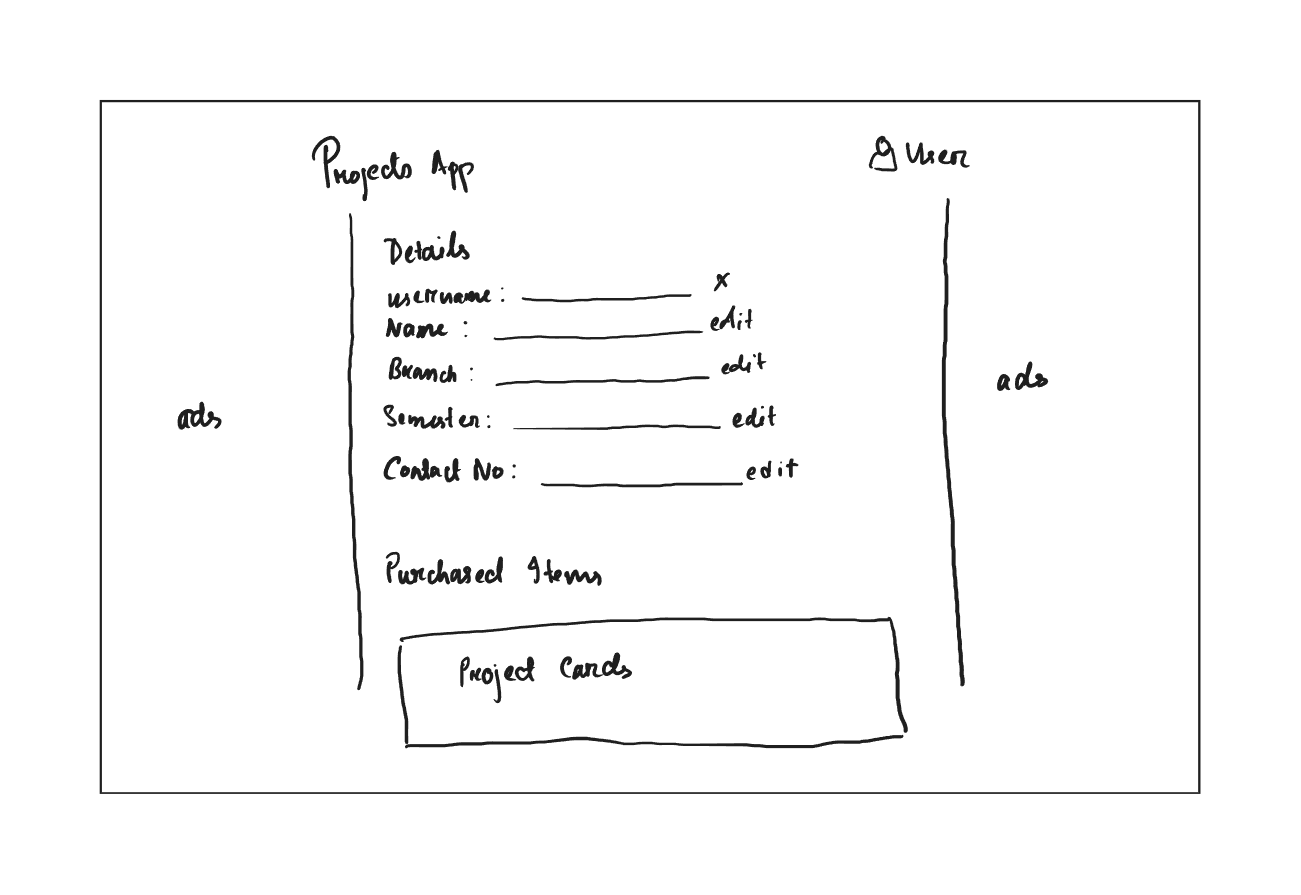 Projects App
User
Details
username :
x
Name : edit
Branch : edit
Semester : edit
Contact No : edit
ads
ads
Purchased Items
Project Cards